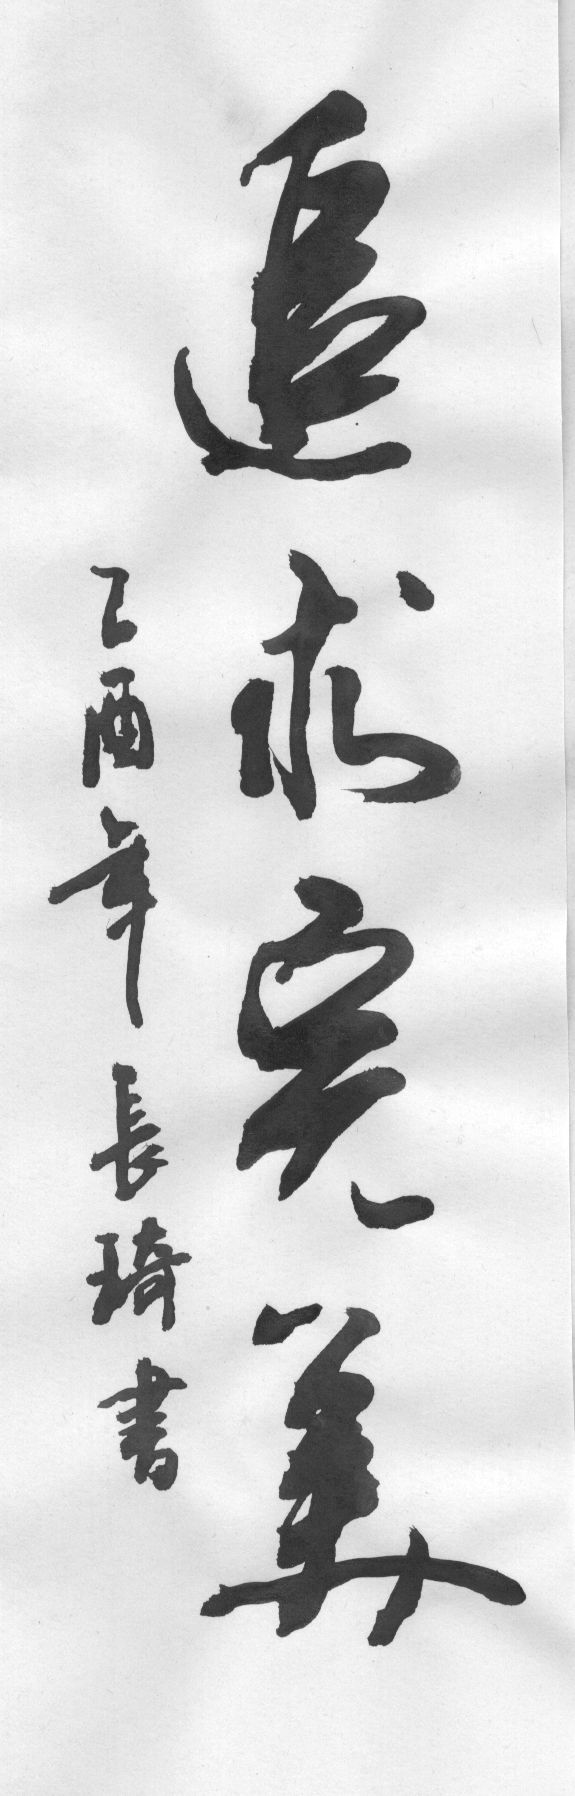 追求完美
乙酉年長琦書